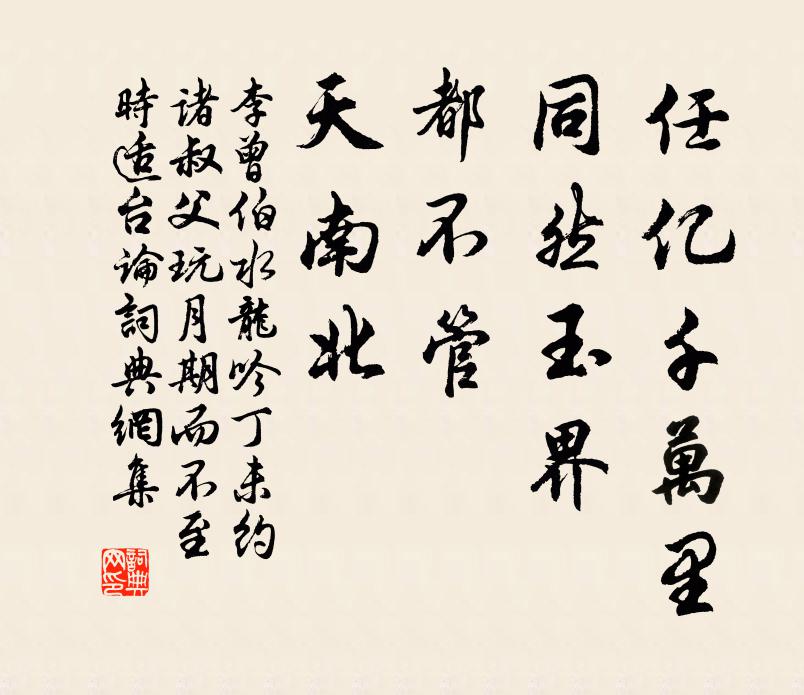 任亿千萬里
同然玉界
都不管
天南北
李曾伯水龍吟丁未約
諸叔父玩月期而不至
時适台論詞典網集
詞典網印